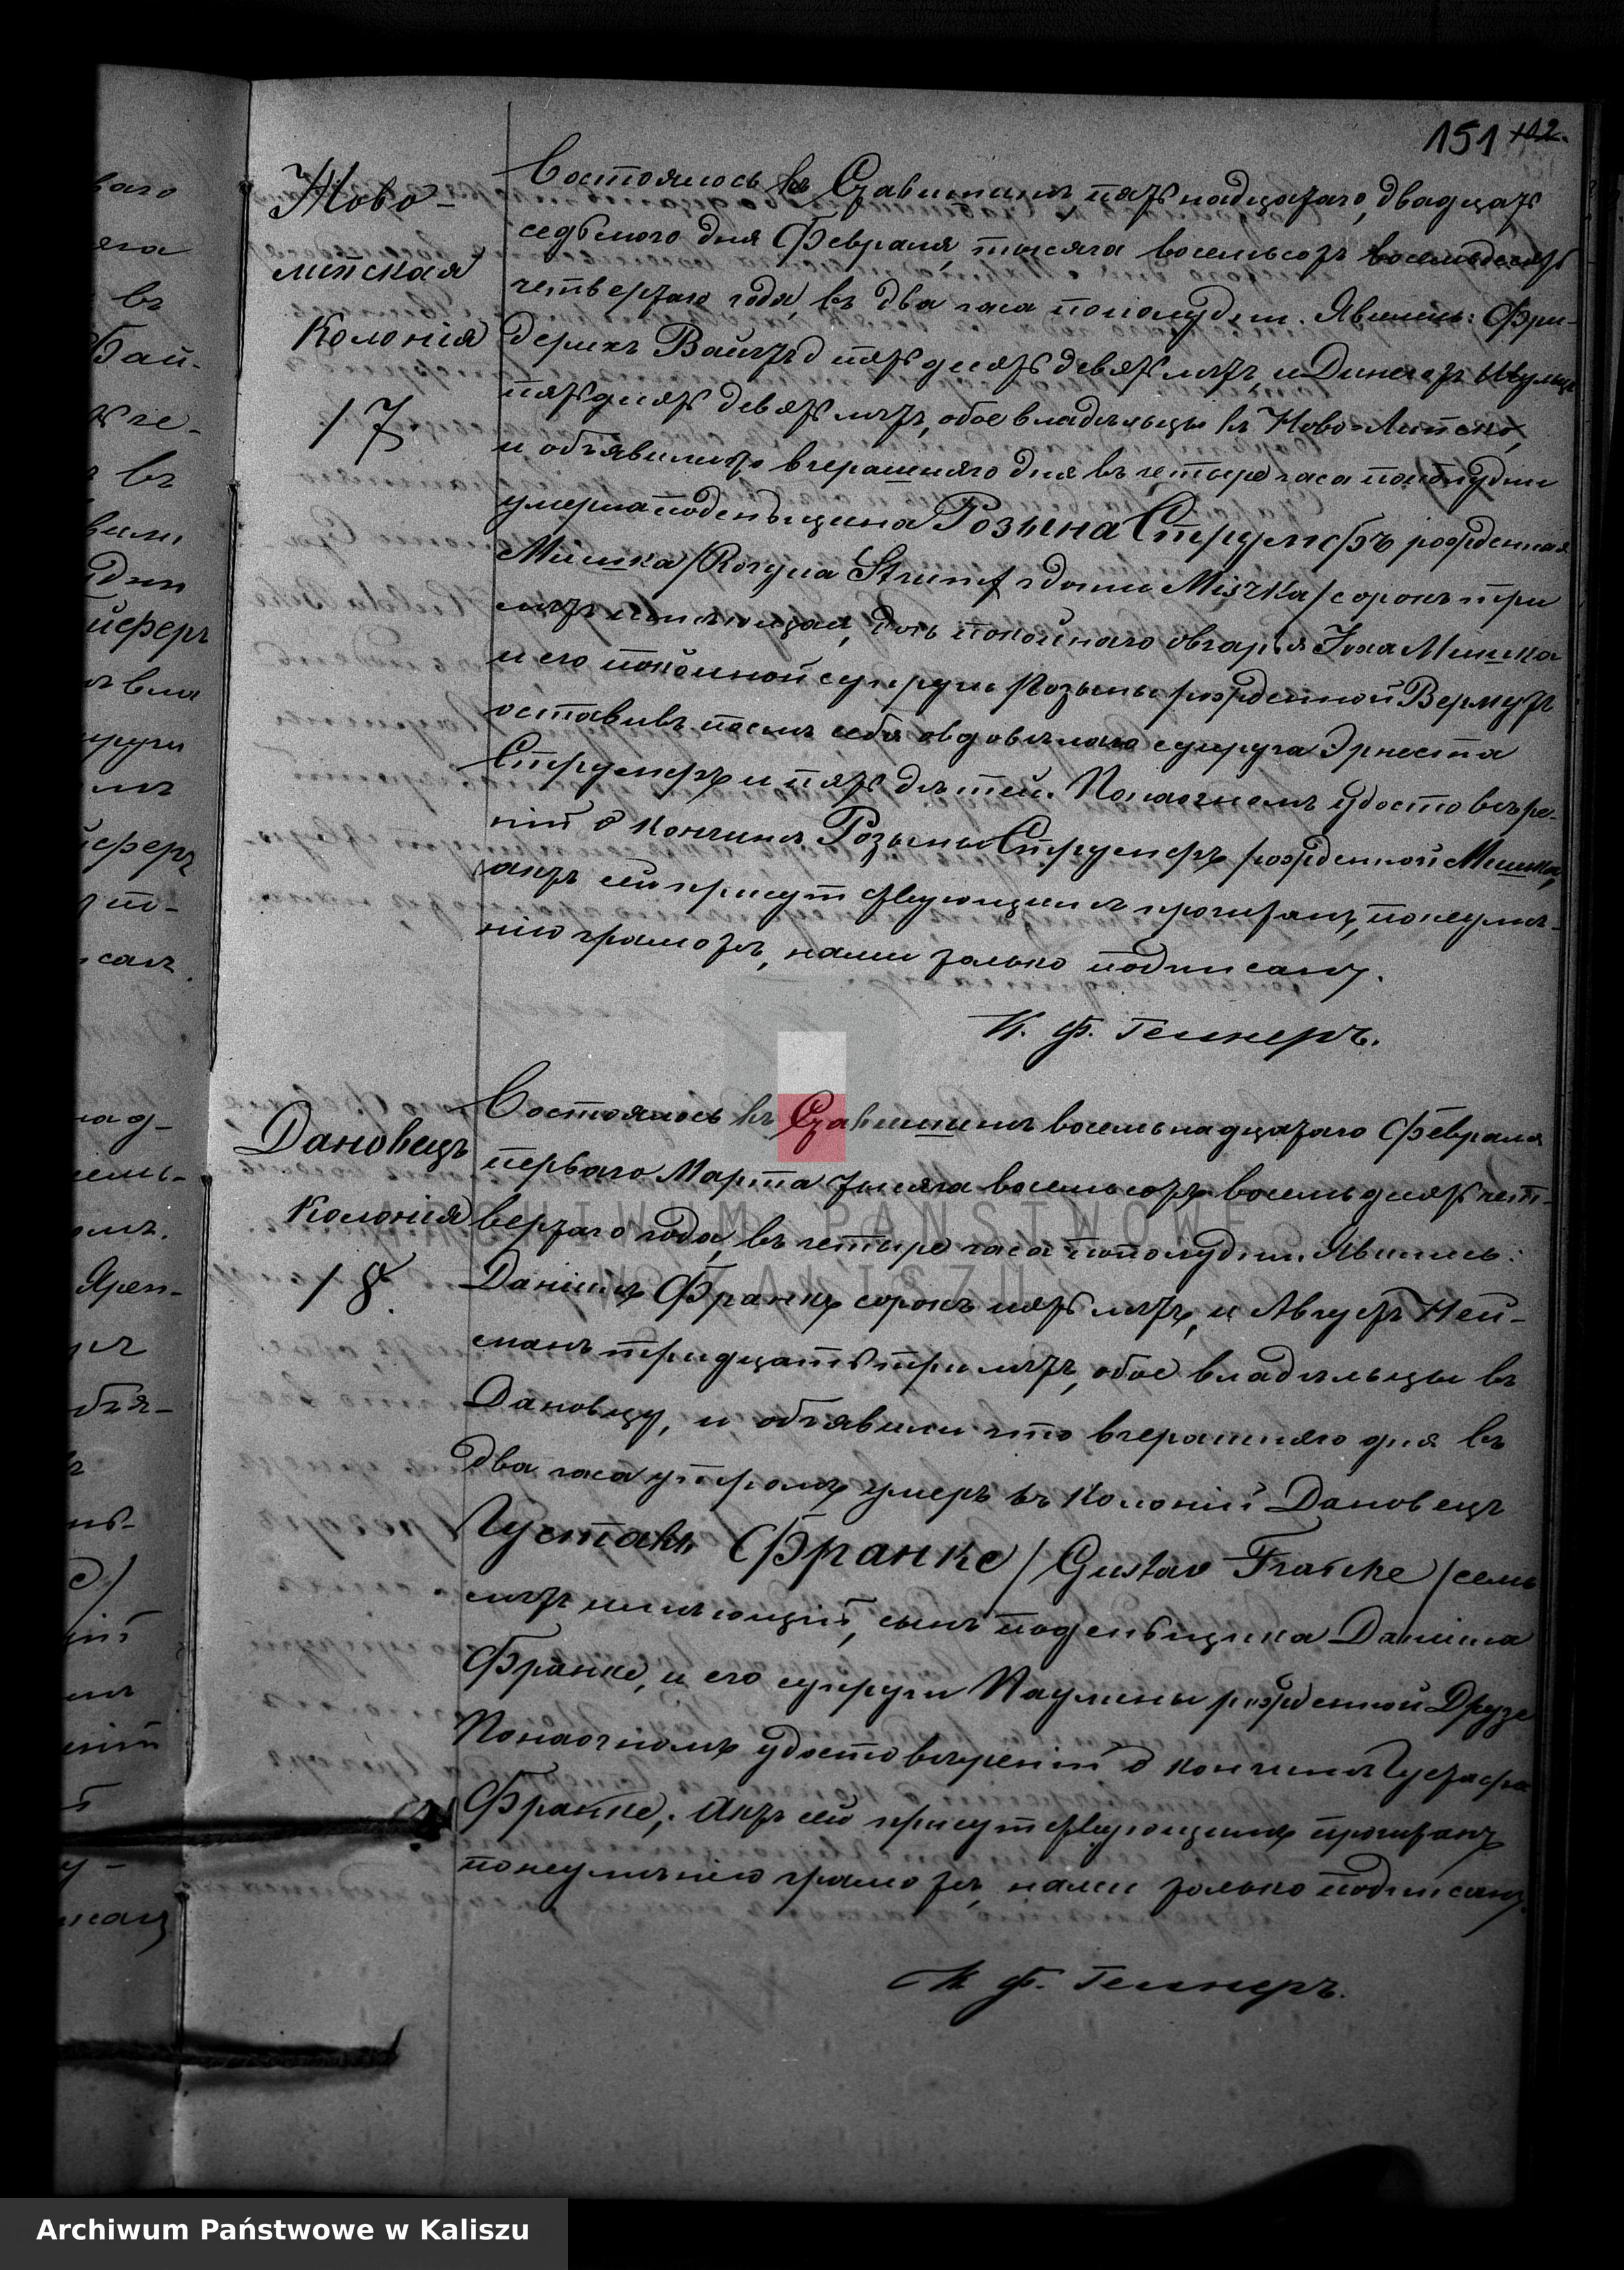 151 112.
Ново-
липская
Колонія
17
Состоялось въ Ставишинѣ, пятьнадцатаго, двадцать
седьмого дня Февраля, тысяча восемьсотъ восемьдесятъ
четвертаго года, въ два часа пополудни. Явились: Фри-
дерихъ Вайгтъ пятьдесятъ девять лѣтъ, и Шульцъ
пятьдесятъ девять лѣтъ, обое владѣльцы въ Ново-Липско,
и объявили что вчерашняго дня въ четыре часа пополудни
умерла поденьщица Розына Струмфъ рожденная
Мишка /Rozyna Strumf z domu Miszka/ сорокъ три
лѣтъ имѣющая, дочь покойнаго овчаря Мишка
и его покойной супруги Розыны рожденной Вермутъ
оставивъ послѣ себя овдовѣлаго супруга Эрнеста
Струмфъ и пять дѣтей. По наочномъ удостовѣре-
ніи о кончинѣ Розыны Струмфъ рожденной Мишка,
актъ сей присутствующимъ прочитанъ, по неумѣ-
нію грамотѣ, нами только подписанъ.
К. Ф. Гелнеръ.
Дановецъ
Колонія
18.
Состоялось въ Ставишинѣ восемьнадцатаго Февраля
перваго Марта тысяча восемьсотъ восемьдесятъ чет-
вертаго года, въ четыре часа пополудни. Явились:
Даніилъ Франке сорокъ пять лѣтъ, и Августъ Ней-
манъ тридцать три лѣтъ, обое владѣльцы въ
Дановцу, и объявили что вчерашняго дня въ
два часа утромъ умеръ въ Колоніи Дановецъ
Густавъ Франке /Gustav Franke/ семь
лѣтъ имѣющій, сынъ поденьщика Даніила
Франке, и его супруги Паулины рожденной Друзе
По наочномъ удостовѣреніи о кончинѣ Густафа
Франке, Актъ сей присутствующимъ прочитанъ
по неумѣнію грамотѣ, нами только подписанъ.
К. Ф. Гелнеръ.
ARCHIWUM PAŃSTWOWE
W KALISZU
Archiwum Państwowe w Kaliszu